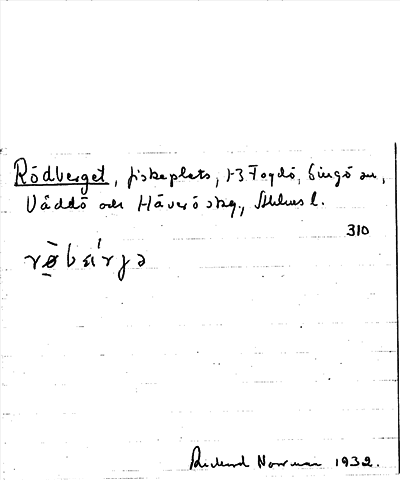 Rödberget, fiskeplats, 1-3 Fogdö, Singö sn,
Väddö och Häverö skg., Sthlms l.
310
rø̀bæ´rjə
Rickard Norrman 1932.